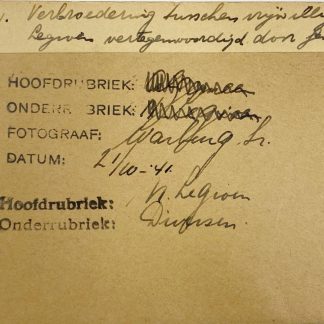 Verbroedering tusschen vrijwilli
Legioen vertegenwoordigd door
HOOFDRUBRIEK:
ONDERRUBRIEK:
FOTOGRAAF:
DATUM: 21/10-'41.
Hoofdrubriek: N. Legioen
Onderrubriek: Diversen.